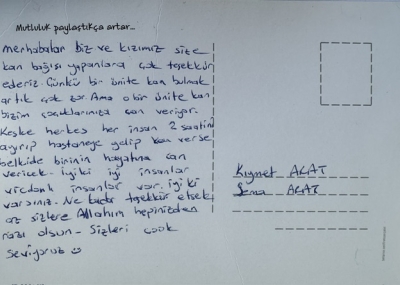 Mutluluk paylaştıkça artar...
merhabalar biz ve kızımız size
kan bağışı yapanlara çok teşekkür
ederiz. Çünkü bir ünite kan bulmak
artık çok zor. Ama o bir ünite kan
bizim çocuklarımıza can veriyor.
Keşke herkes her insan 2 saatini
ayırıp hastaneye gelip kan verse
belkide birinin hayatına can
vericek. iyiki iyi insanlar
vicdanlı insanlar var. iyi ki
varsınız. Ne kadar teşekkür etsek
az sizlere Allahım hepinizden
razı olsun - Sizleri çook
seviyoruz
Kıymet AKAT
Sema AKAT